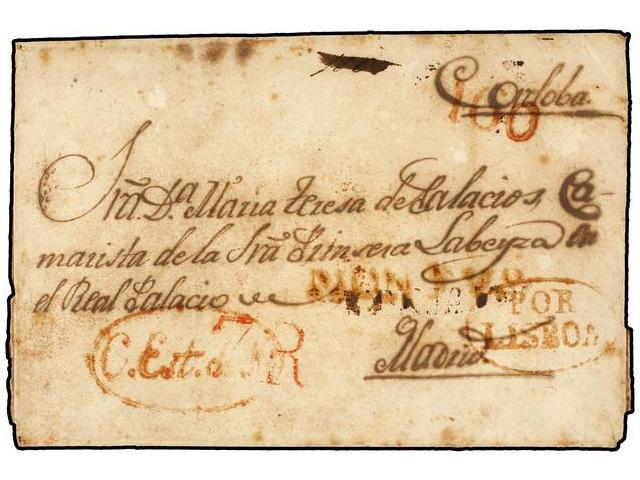 Cordoba.
100
Sra. Da. Maria teresa de Palacios, Ca-
marista de la Sra. Prinsesa Labeyza en
el Real Palacio
POR
LISBOA
C. Est. 7R
Madrid.